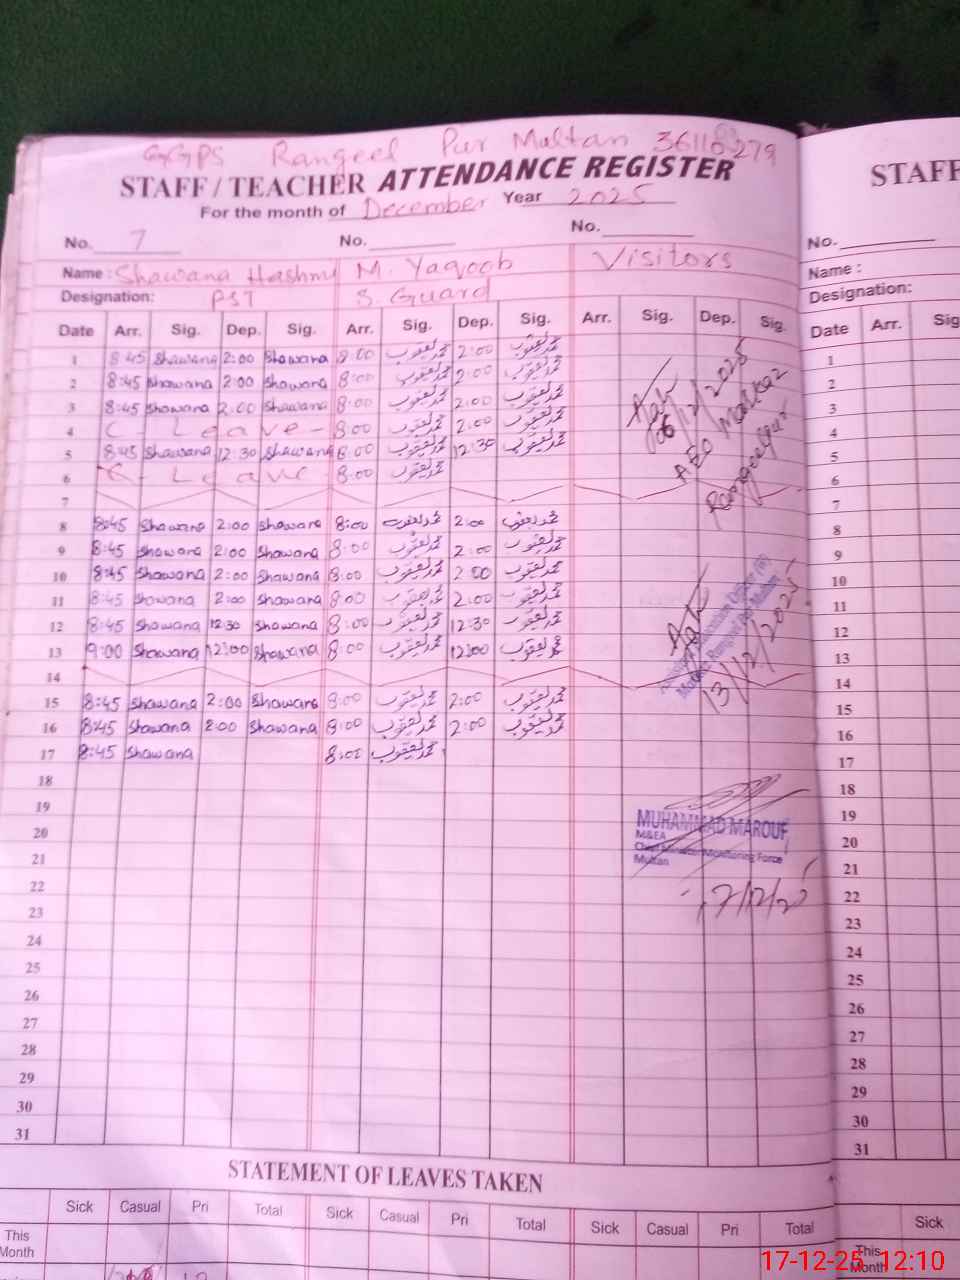 GGPS Rangeel Pur Multan 36110279
STAFF / TEACHER ATTENDANCE REGISTER
For the month of December Year 2025
No. 7 No. No.
Name : Shawana Hashmi M. Yaqoob Visitors
Designation: PST S. Guard
Date Arr. Sig. Dep. Sig. Arr. Sig. Dep. Sig. Arr. Sig. Dep. Sig.
1 8:45 Shawana 2:00 Shawana 8:00 محمد یعقوب 2:00 محمد یعقوب
2 8:45 Shawana 2:00 Shawana 8:00 محمد یعقوب 2:00 محمد یعقوب
3 8:45 Shawana 2:00 Shawana 8:00 محمد یعقوب 2:00 محمد یعقوب
4 C - Leave - 8:00 محمد یعقوب 2:00 محمد یعقوب
5 8:45 Shawana 12:30 Shawana 8:00 محمد یعقوب 12:30 محمد یعقوب
6 C - Leave 8:00 محمد یعقوب
06/12/2025
AEO Markaz
Rangeelpur
7
8 8:45 Shawana 2:00 Shawana 8:00 محمد یعقوب 2:00 محمد یعقوب
9 8:45 Shawana 2:00 Shawana 8:00 محمد یعقوب 2:00 محمد یعقوب
10 8:45 Shawana 2:00 Shawana 8:00 محمد یعقوب 2:00 محمد یعقوب
11 8:45 Shawana 2:00 Shawana 8:00 محمد یعقوب 2:00 محمد یعقوب
12 8:45 Shawana 12:30 Shawana 8:00 محمد یعقوب 12:30 محمد یعقوب
13 9:00 Shawana 12:00 Shawana 8:00 محمد یعقوب 12:00 محمد یعقوب
13/12/2025
14
15 8:45 Shawana 2:00 Shawana 8:00 محمد یعقوب 2:00 محمد یعقوب
16 8:45 Shawana 2:00 Shawana 8:00 محمد یعقوب 2:00 محمد یعقوب
17 8:45 Shawana 8:00 محمد یعقوب
18
19
MUHAMMAD MAROUF
M&EA
Chief Minister Monitoring Force
Multan
20
21
17/12/25
22
23
24
25
26
27
28
29
30
31
STATEMENT OF LEAVES TAKEN
Sick Casual Pri Total Sick Casual Pri Total Sick Casual Pri Total
This
Month
STAFF
No.
Name :
Designation:
Date Arr. Sig
1
2
3
4
5
6
7
8
9
10
11
12
13
14
15
16
17
18
19
20
21
22
23
24
25
26
27
28
29
30
31
Sick
This
Month
17-12-25 12:10